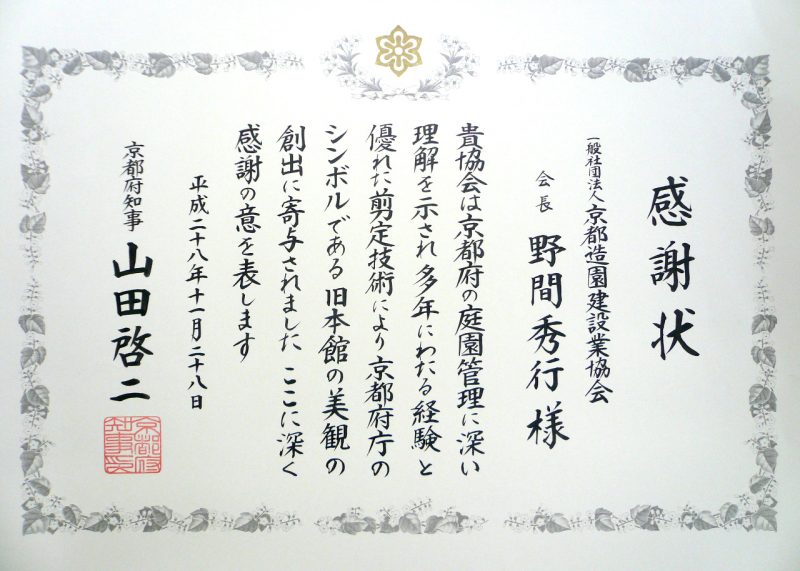 感謝状
一般社団法人 京都造園建設業協会
会長 野間秀行様
貴協会は京都府の庭園管理に深い
理解を示され多年にわたる経験と
優れた剪定技術により京都府庁の
シンボルである旧本館の美観の
創出に寄与されました ここに深く
感謝の意を表します
平成二十八年十一月二十八日
京都府知事 山田啓二
京都府知事印